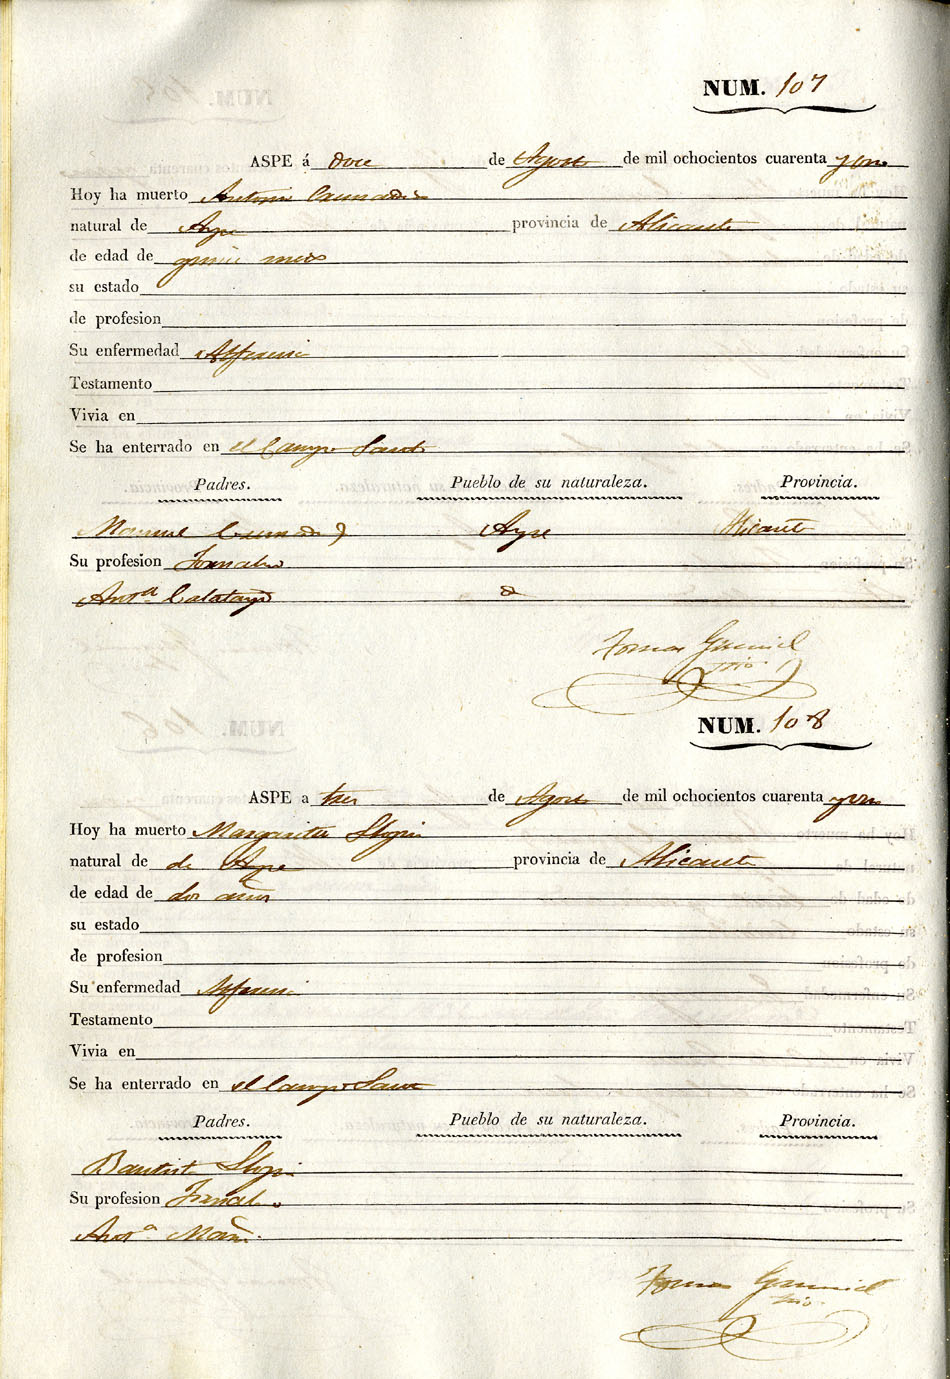 NUM. 107
ASPE á doce de Agosto de mil ochocientos cuarenta y uno
Hoy ha muerto Antonio
natural de Aspe provincia de Alicante
de edad de meses
su estado
de profesion
Su enfermedad Alferecia
Testamento
Vivia en
Se ha enterrado en el Campo Santo
Padres. Pueblo de su naturaleza. Provincia.
Manuel Aspe Alicante
Su profesion Jornalero
Antª Calatayud
Tomas
NUM. 108
ASPE a tres de Agosto de mil ochocientos cuarenta y uno
Hoy ha muerto Margarita
natural de de Aspe provincia de Alicante
de edad de dos años
su estado
de profesion
Su enfermedad Alferecia
Testamento
Vivia en
Se ha enterrado en el Campo Santo
Padres. Pueblo de su naturaleza. Provincia.
Bautista
Su profesion Jornalero
Antª
Tomas